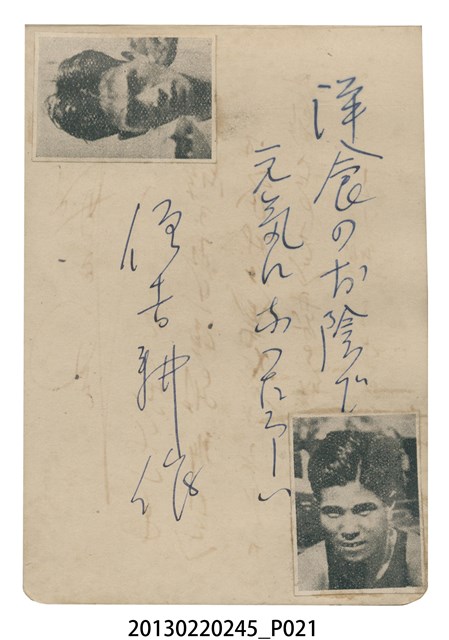 洋食のお陰で
元気になったらしい
住吉耕作
20130220245_P021